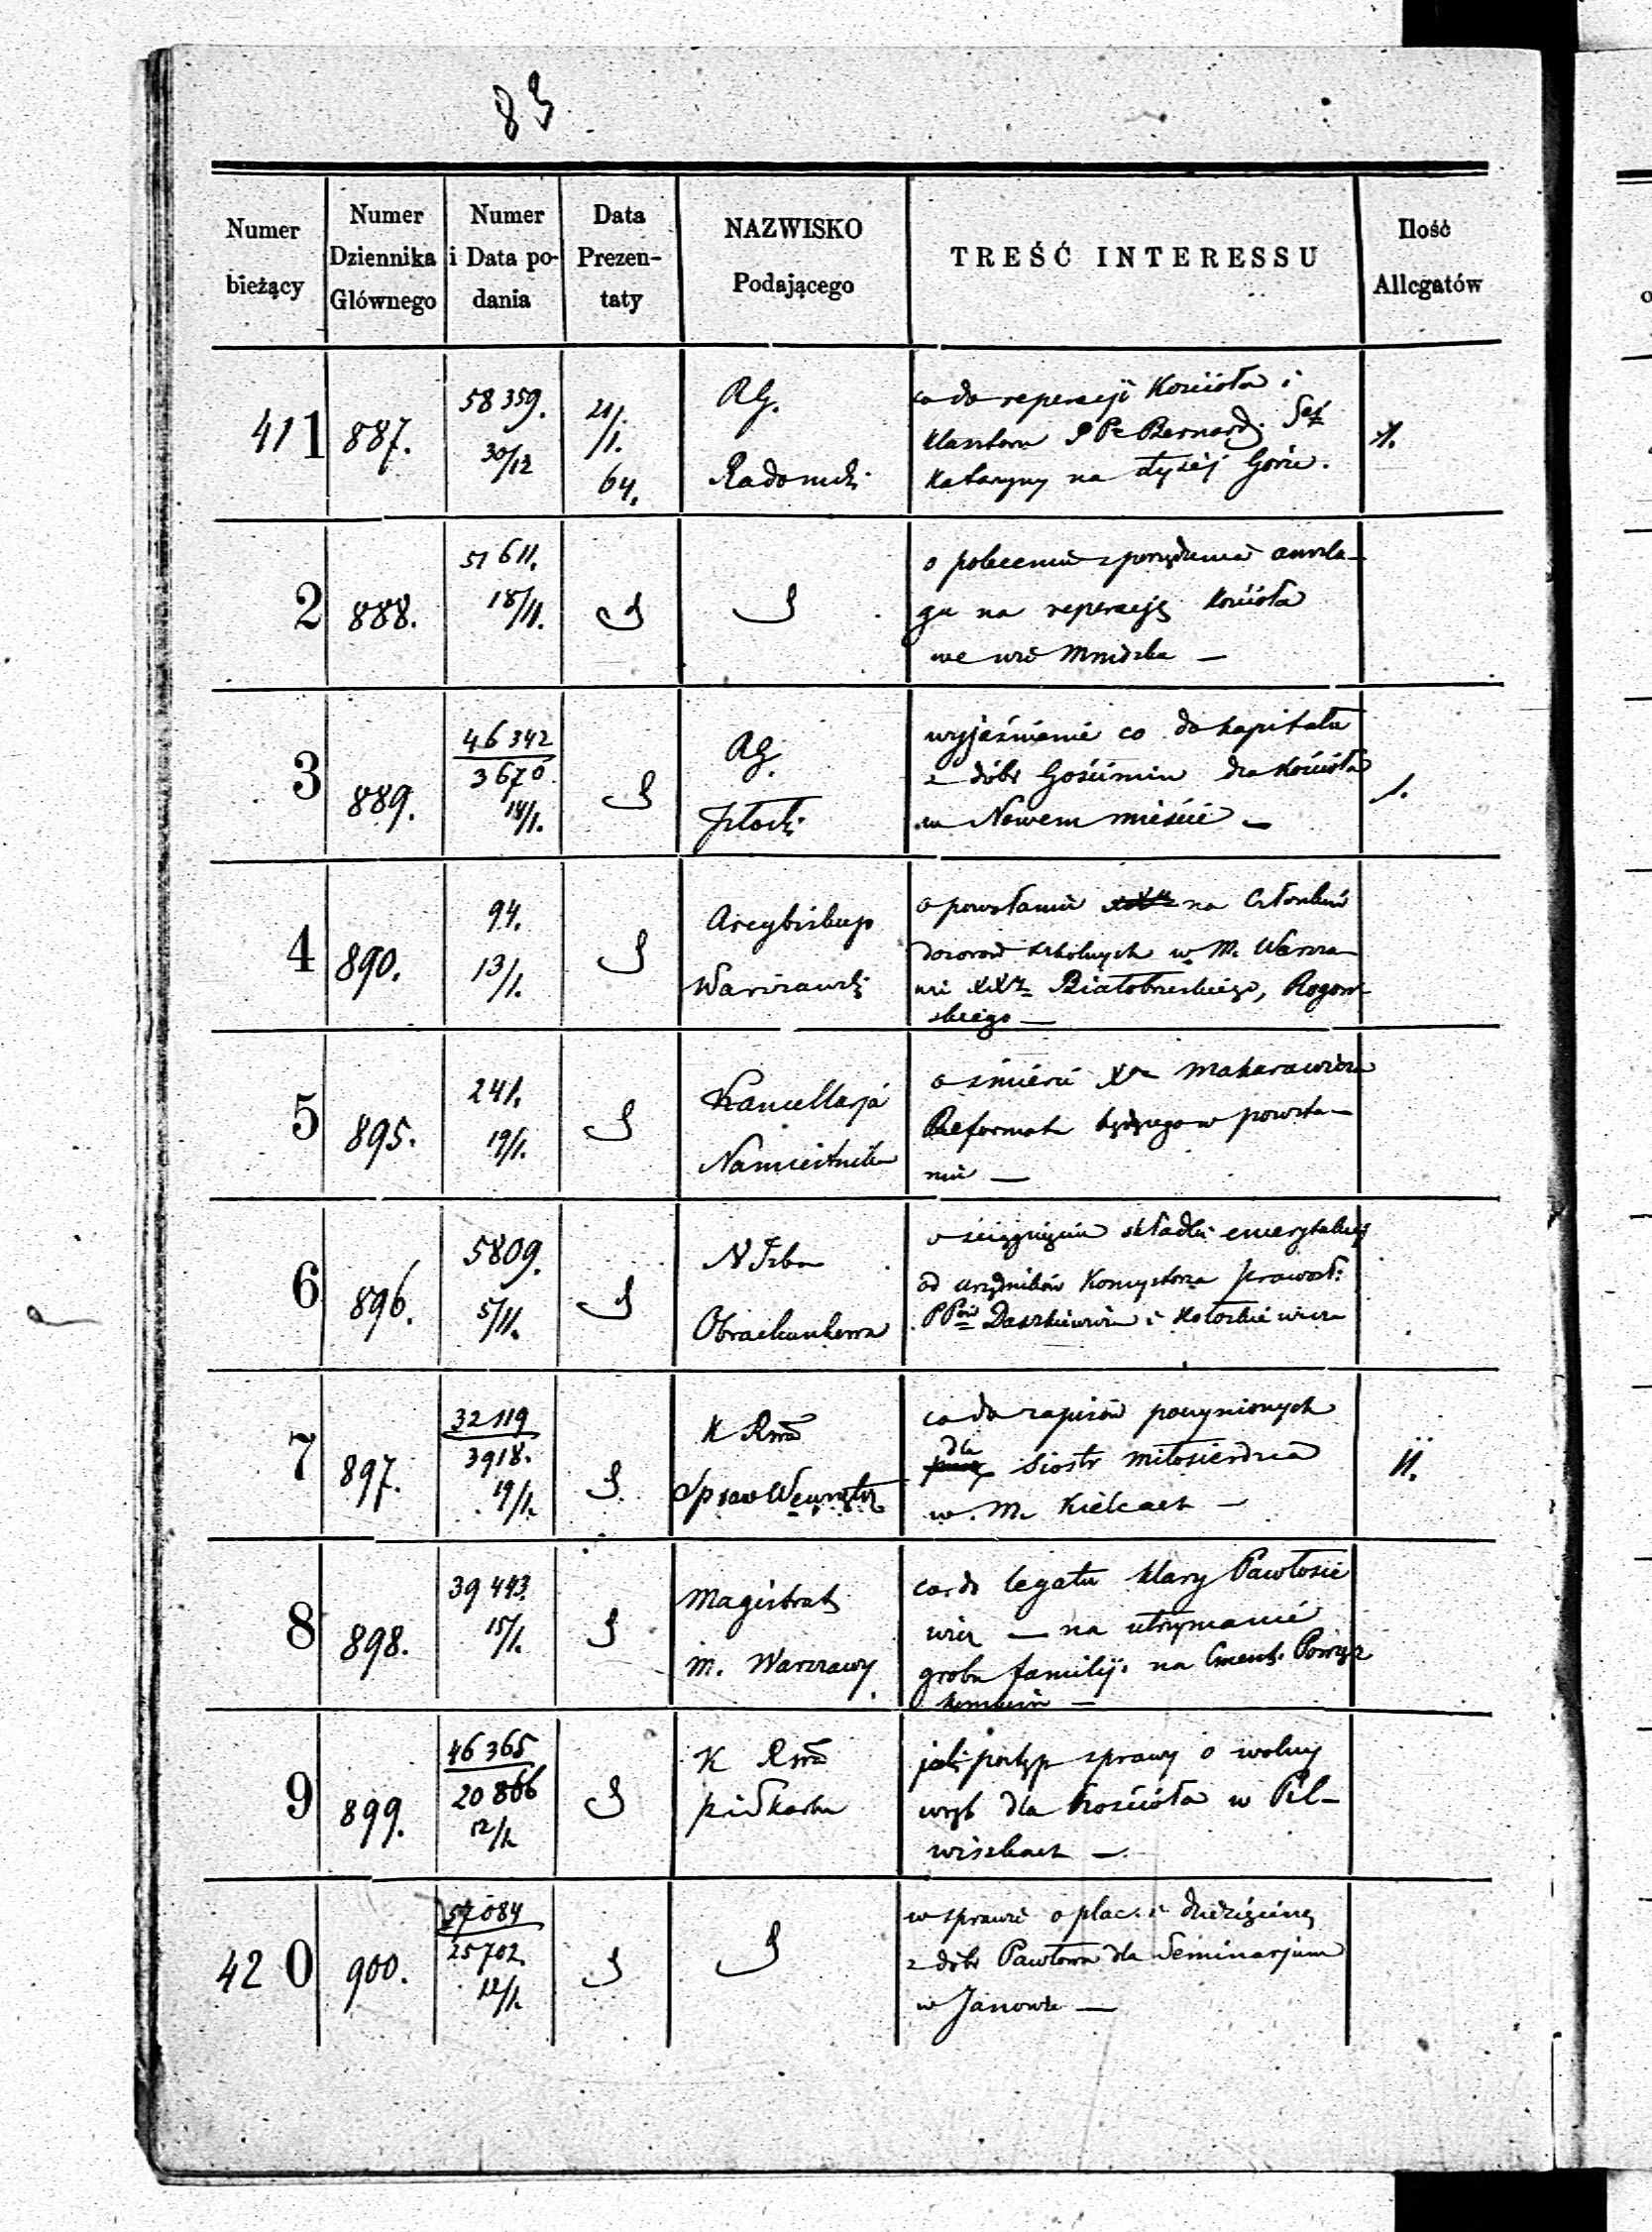 83
Numer bieżący
Numer Dziennika Głównego
Numer i Data podania
Data Prezentaty
NAZWISKO Podającego
TREŚĆ INTERESSU
Ilość Allegatów
411 887. 58359. 30/12 21/1. 64. RG. Radomski
co do reperacji Kościoła i
klasztoru PP Bernard. Śej
Katarzyny na Łysej Górze.
1.
2 888. 51611. 18/11.
o polecenie sporządzenia anszla-
gu na reperację Kościoła
we wsi Mnidzka —
3 889. 46342 3670. 14/1. RG. Płocki
wyjaśnienie co do kapitału
z dóbr Gościmin dla Kościoła
w Nowem mieście —
1.
4 890. 94. 13/1. Arcybiskup Warszawski
o powołanie na Członków
dozorów szkolnych w M. Warsza-
wie XX Białobrzeskiego, Rogow-
skiego —
5 895. 241. 19/1. Kancellarja Namiestnika
o śmierci Xa Makarawicza
Reformata będącego w powsta-
niu —
6 896. 5809. 5/11. N Izba Obrachunkowa
o ściągnięciu składki emerytalnej
od urzędników Konsystorza prawosł:
PPów Daszkiewicza i Kołoszkiewicza
7 897. 32119 3918. 19/1. K Rwa Spraw Wewnętrz
co do zapisów poczynionych
dla Siostr miłosierdzia
w M. Kielcach —
11.
8 898. 39443. 15/1. Magistrat m. Warszawy
co do legatu Klary Pawłosie
wicz — na utrzymanie
grobu familij. na Cment. Powąz
kowskim —
9 899. 46365 20866 12/1. K Rwa P i Skarbu
jaki postęp sprawy o wolny
wrąb dla Kościoła w Pil-
wiszkach —
420 900. 57084 25702 12/1.
w sprawie o plac i dziesięcinę
z dóbr Pawłowa dla Seminarjum
w Janowie —